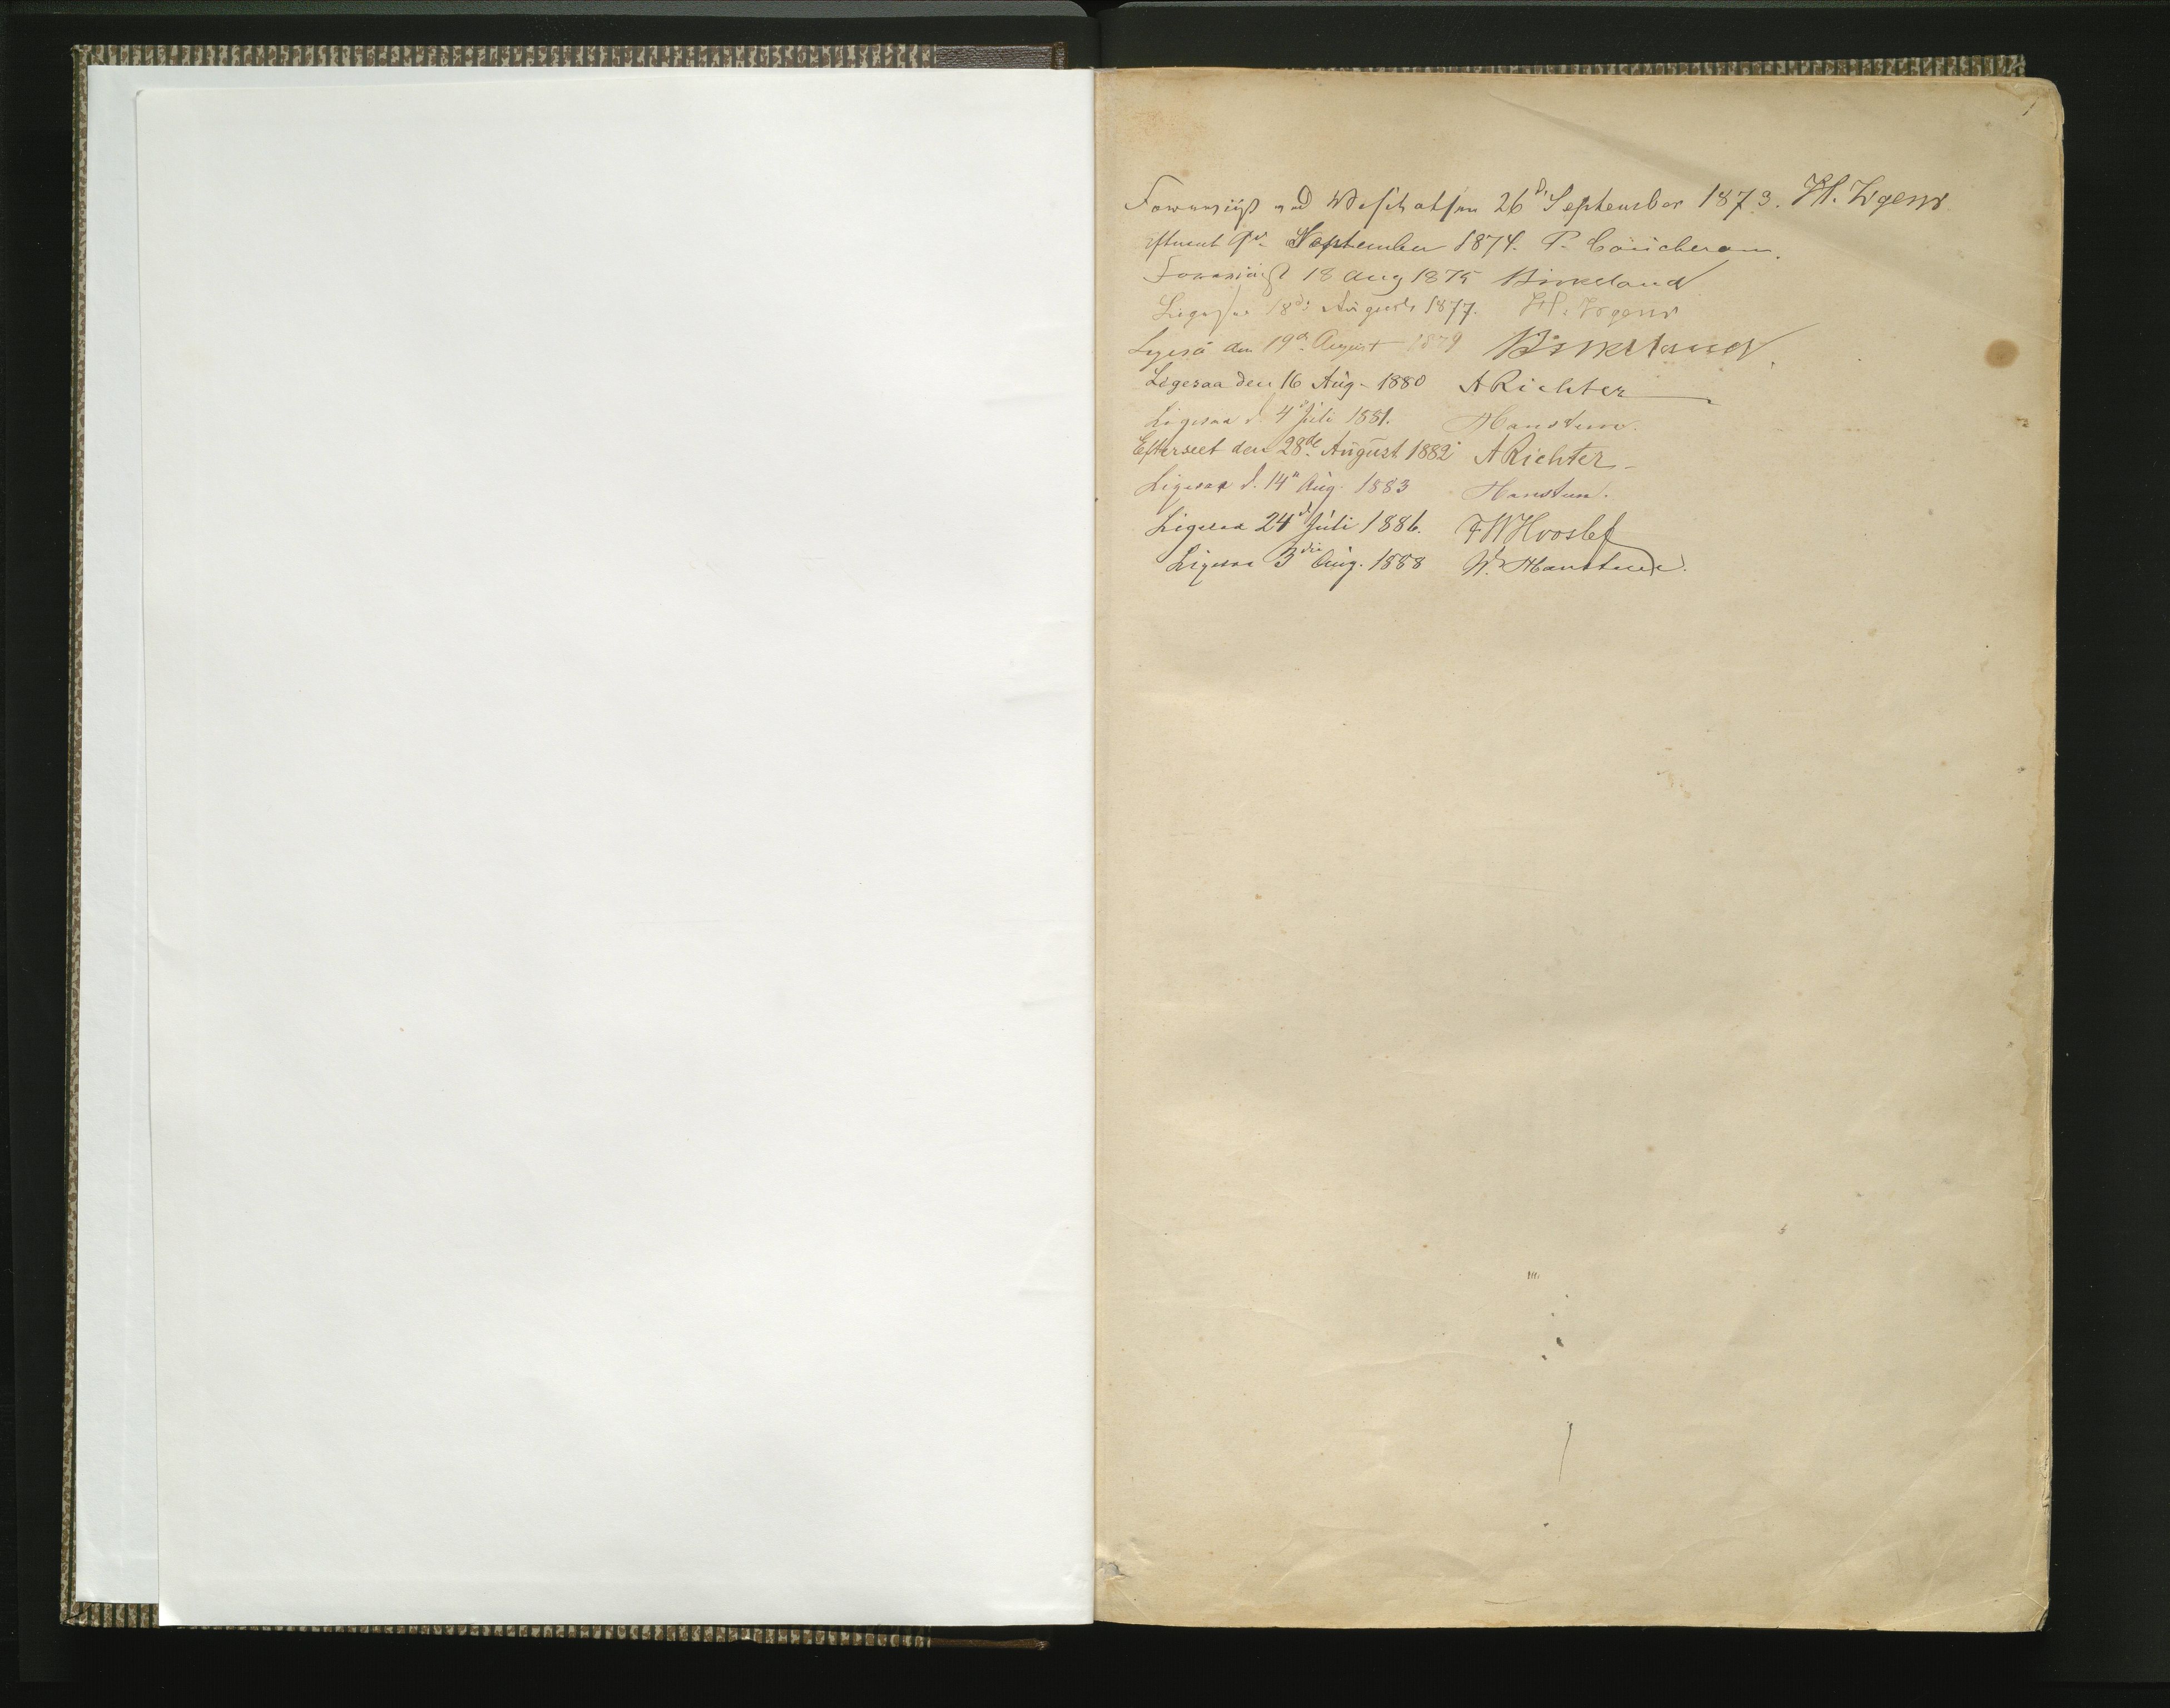 1
Foreviist ved Visitatsen 26d: September 1873. JH. Irgens
iftuent 9de September 1874. P. Coucheron.
Foreviist 18 Aug 1875 Birkeland
Ligesaa 18de August 1877. JH. Irgens
Ligeså den 19de August 1879 Birkeland
Ligesaa den 16 Aug. 1880 ARichter
Ligesaa d. 4d Juli 1881. Hansteen.
Efterseet den 28de August 1882 ARichter
Ligesaa d. 14n Aug. 1883 Hansteen.
Ligesaa 24d Juli 1886. FWHvoslef
Ligesaa 3die Aug. 1888 W. Hansteen.